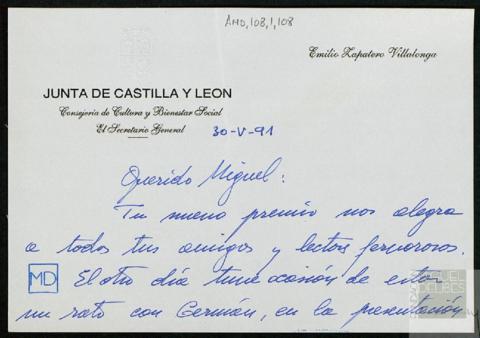 AMD,108,1,108
Emilio Zapatero Villalonga
JUNTA DE CASTILLA Y LEON
Consejería de Cultura y Bienestar Social
El Secretario General
30-V-91
Querido Miguel:
Tu nuevo premio nos alegra
a todos tus amigos y lectores fervorosos.
MD
El otro día tuve ocasión de estar
un rato con Germán, en la presentación
MIGUEL
DELIBES